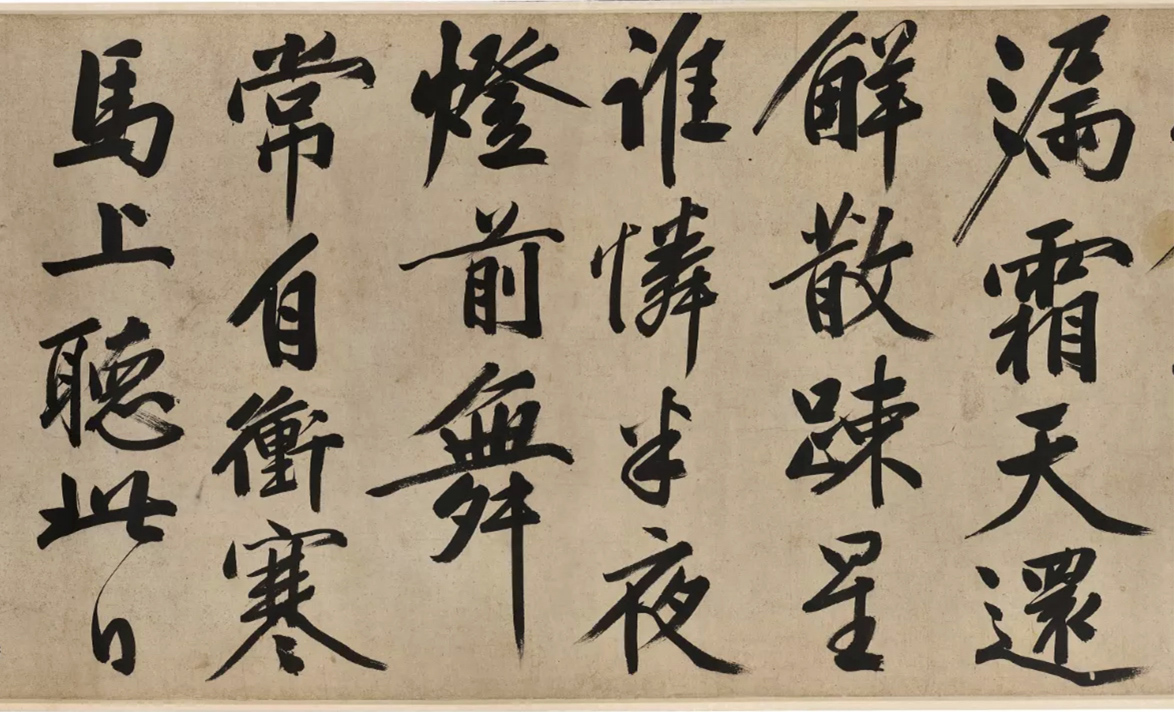 漏霜天還
解散踈星
誰憐半夜
燈前舞
常自衝寒
馬上聽此日